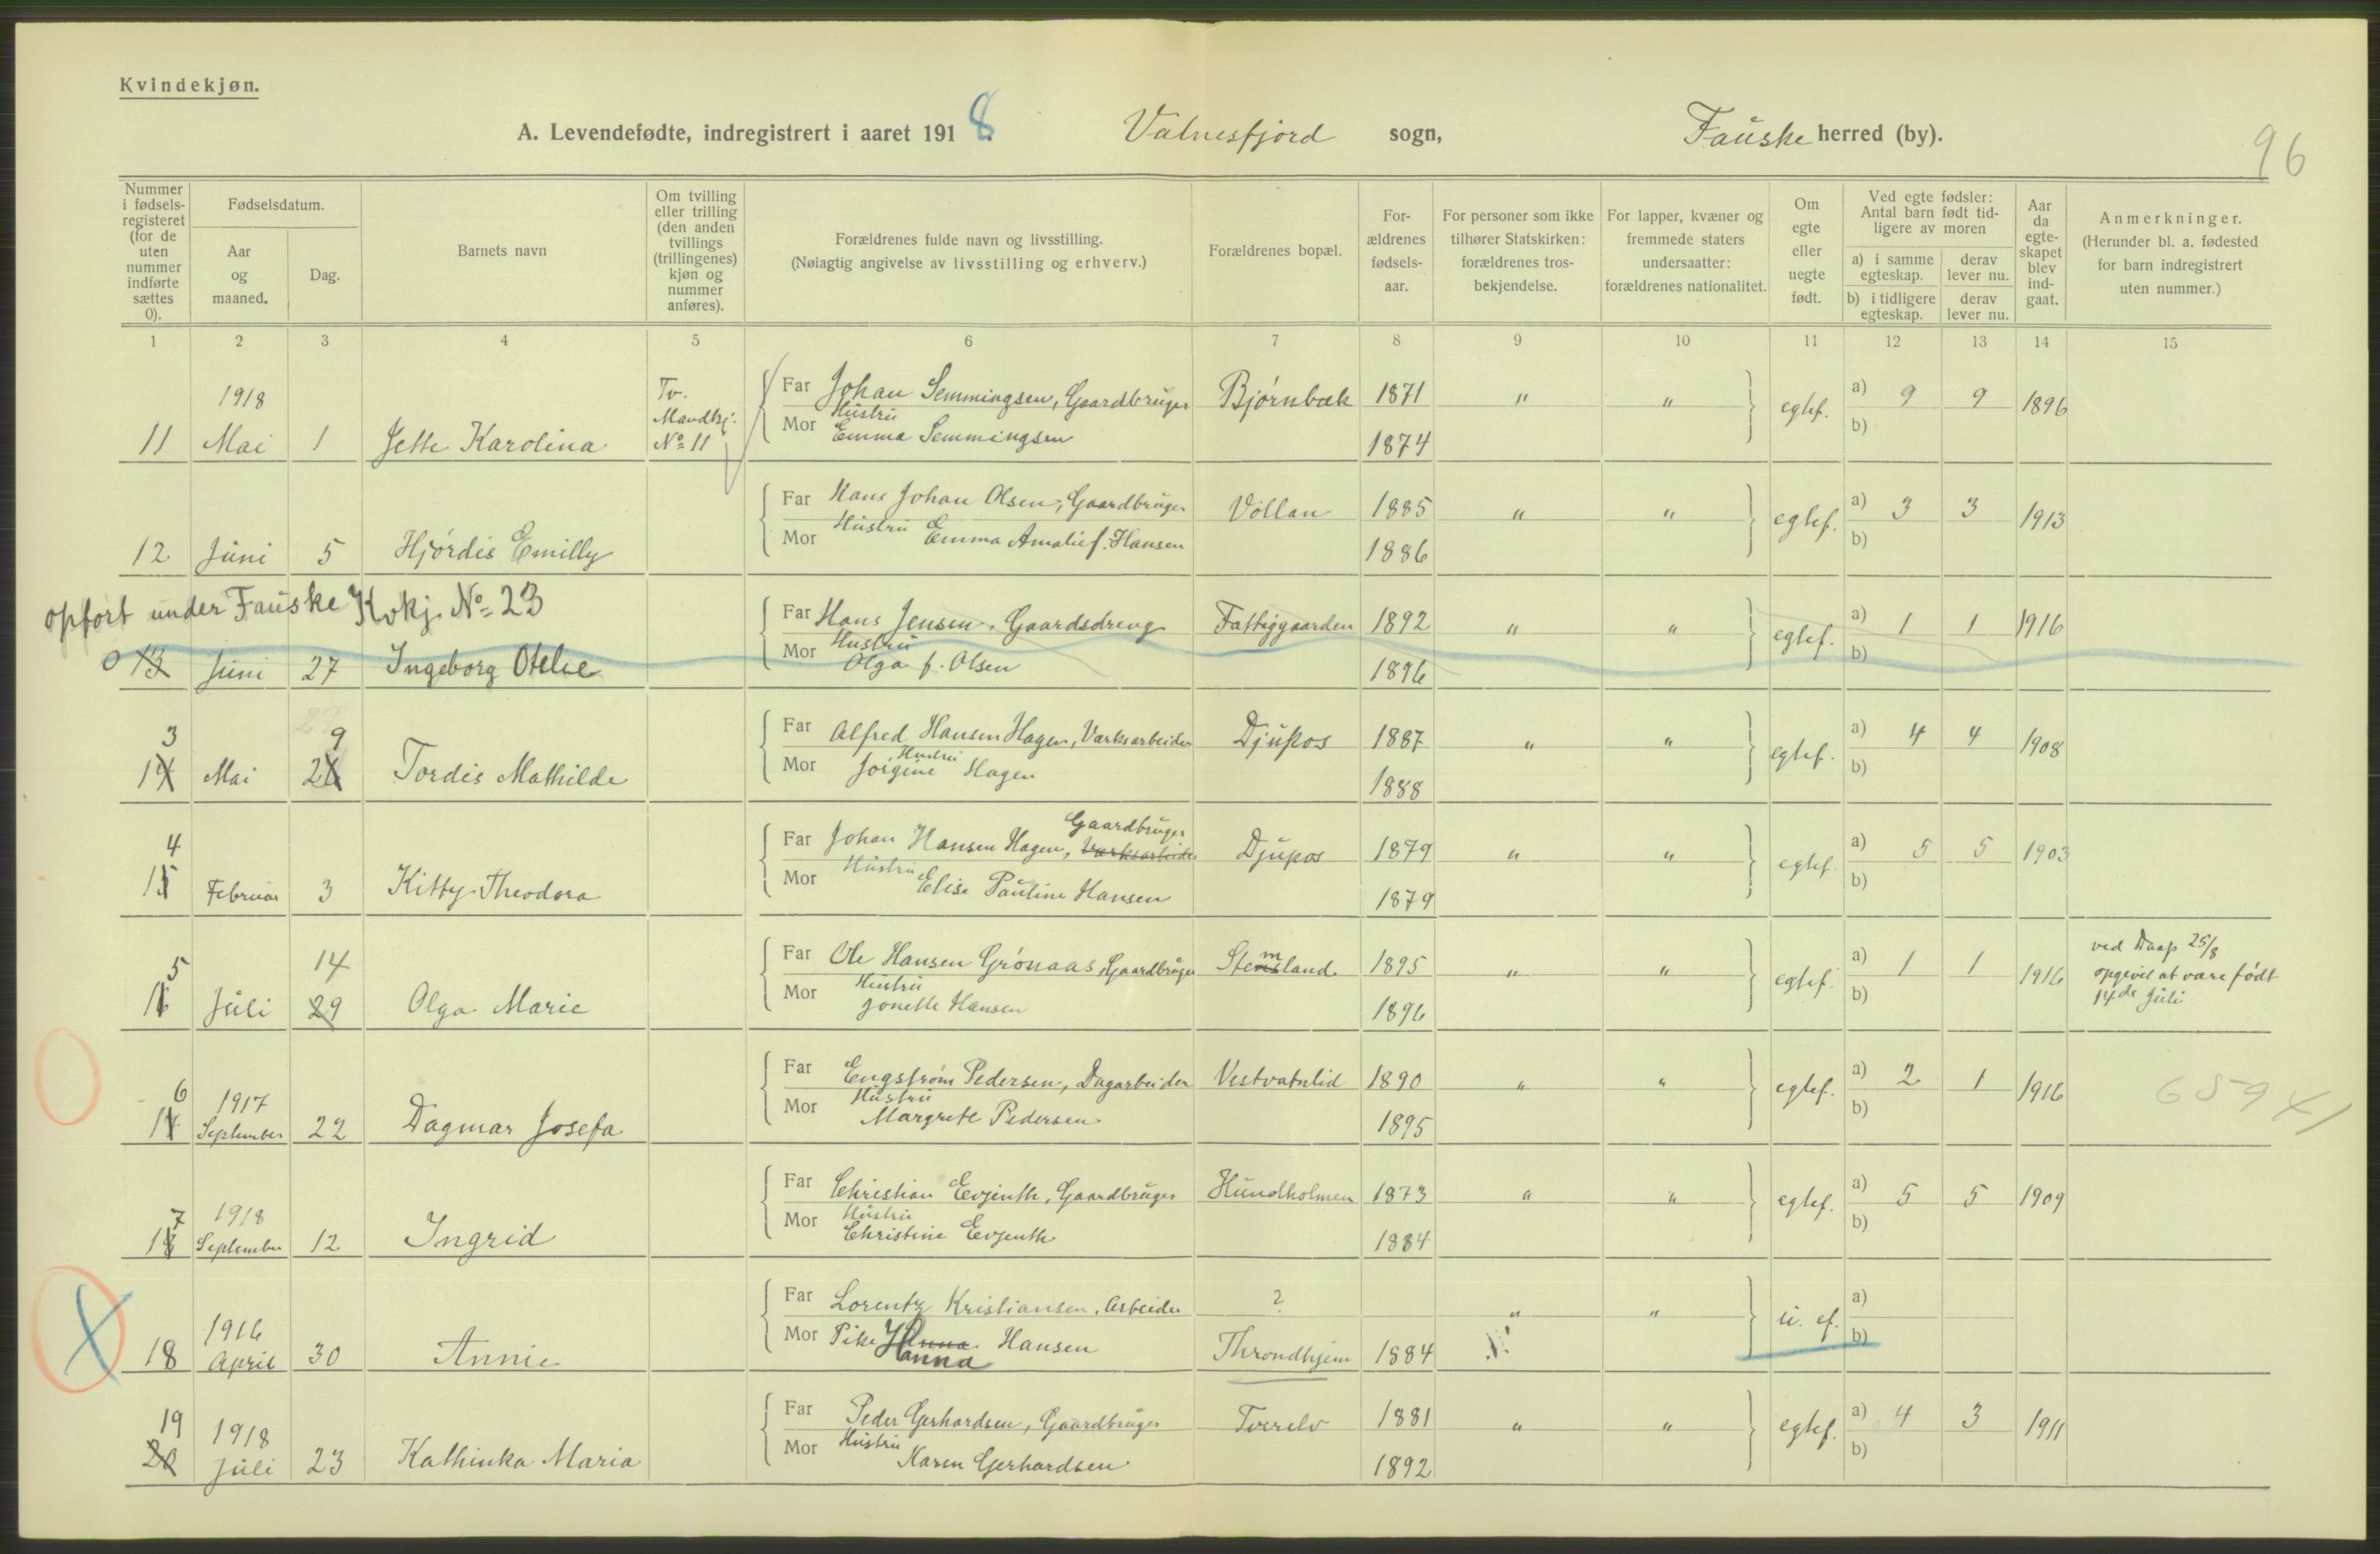 Kvindekjøn.
A. Levendefødte, indregistrert i aaret 1918. Valnesfjord sogn, Fauske herred (by).
96
Nummer i fødsels-registeret (for de uten nummer indførte sættes 0).
Fødselsdatum.
Aar og maaned.
Dag.
Barnets navn
Om tvilling eller trilling (den anden tvillings (trillingenes) kjøn og nummer anføres).
Forældrenes fulde navn og livsstilling.
(Nøiagtig angivelse av livsstilling og erhverv.)
Forældrenes bopæl.
For-ældrenes fødsels-aar.
For personer som ikke tilhører Statskirken: forældrenes tros-bekjendelse.
For lapper, kvæner og fremmede staters undersaatter: forældrenes nationalitet.
Om egte eller uegte født.
Ved egte fødsler: Antal barn født tid-ligere av moren
a) i samme egteskap.
derav lever nu.
b) i tidligere egteskap.
derav lever nu.
Aar da egte-skapet blev ind-gaat.
Anmerkninger.
(Herunder bl. a. fødested for barn indregistrert uten nummer.)
1 2 3 4 5 6 7 8 9 10 11 12 13 14 15
1918 Tv. Mandkj. No 11 Far Johan Semmingsen, Gaardbruger Bjørnbæk 1871 " " egtef. a) 9 9 1896
11 Mai 1 Jette Karolina Mor Hustru Emma Semmingsen 1874 b)
Far Hans Johan Olsen, Gaardbruger Vollan 1885 " " egtef. a) 3 3 1913
12 Juni 5 Hjördis Emilly Mor Hustru Emma Amalie f. Hansen 1886 b)
opført under Fauske Kvkj. No 23
Far Hans Jensen, Gaardsdreng Fattiggaarden 1892 " " egtef. a) 1 1 1916
0 13 Juni 27 Ingeborg Otelie Mor Hustru Olga f. Olsen 1896 b)
3 9 Far Alfred Hansen Hagen, Værksarbeider Djupos 1887 " " egtef. a) 4 4 1908
14 Mai 26 Tordis Mathilde Mor Hustru Jorgine Hagen 1888 b)
4 Far Johan Hansen Hagen, Værksarbeider Gaardbruger Djupos 1879 " " egtef. a) 5 5 1903
15 Februar 3 Kitty Theodora Mor Hustru Elise Pauline Hansen 1879 b)
5 14 Far Ole Hansen Grönaas, Gaardbruger Stemland 1895 " " egtef. a) 1 1 1916 ved Daap 25/8 opgivet at være født 14de Juli
16 Juli 29 Olga Marie Mor Hustru Jonette Hansen 1896 b)
6 1917 Far Engstrøm Pedersen, Dagarbeider Vestvatnlid 1890 " " egtef. a) 2 1 1916
17 September 22 Dagmar Josefa Mor Hustru Margrete Pedersen 1895 b)
7 1918 Far Christian Evjenth, Gaardbruger Hundholmen 1873 " " egtef. a) 5 5 1909
18 September 12 Ingrid Mor Hustru Christine Evjenth 1884 b)
1916 Far Lorentz Kristiansen, Arbeider ? " " u. ef. a)
18 April 30 Annie Mor Pike Hanna Hansen Throndhjem 1884 b)
19 1918 Far Peder Gerhardsen, Gaardbruger Tverelv 1881 " " egtef. a) 4 3 1911
20 Juli 23 Kathinka Maria Mor Hustru Karen Gerhardsen 1892 b)